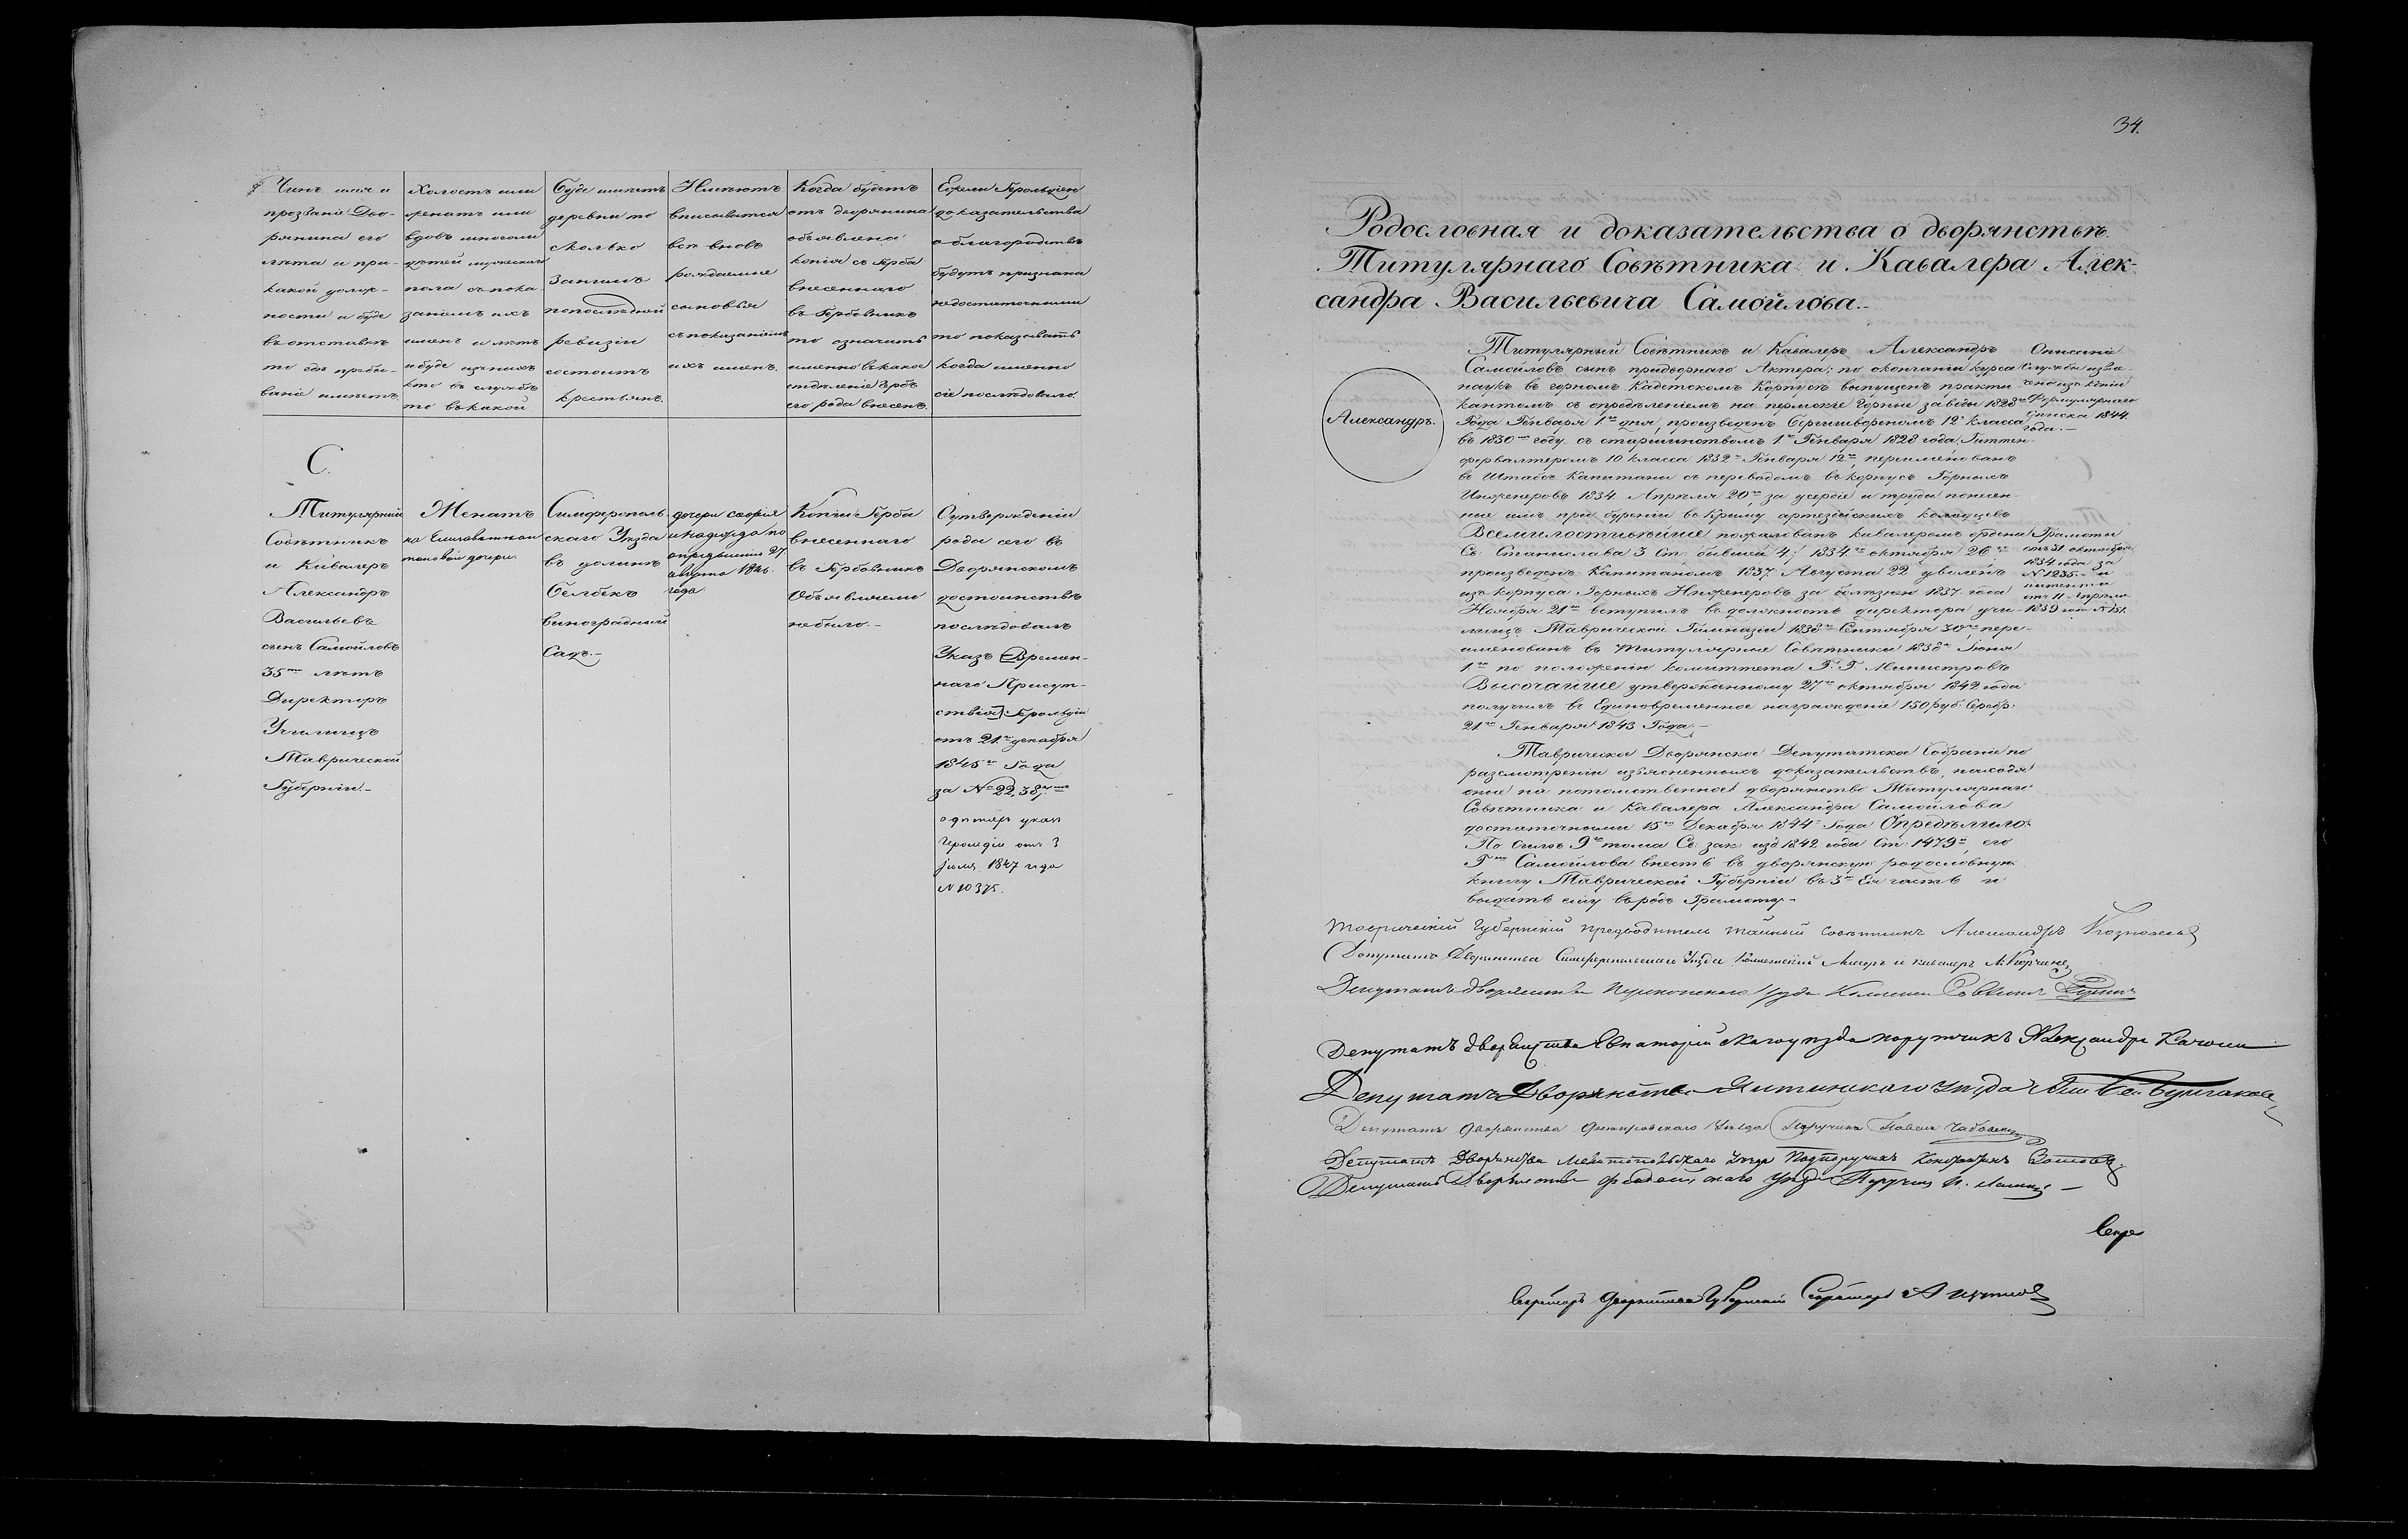 Чинъ имя и
прозваніе Дво-
рянина его
лѣта и при
какой долж-
ности и буде
въ отставкѣ
то гдѣ пребы-
ваніе имѣетъ.
Холостъ или
женатъ или
вдовъ многоли
дѣтей мужескаго
пола съ пока-
заніемъ ихъ
именъ и лѣтъ
и буде изъ нихъ
кто въ службѣ
то въ какой
Буде имѣетъ
деревни то
сколько
за нимъ
по послѣдней
ревизіи
состоитъ
крестьянъ.
вписываются
всѣ вновь
рождаемые
сыновья
съ показаніемъ
ихъ именъ.
Когда будетъ
отъ дворянина
объявлена
копія съ Герба
внесеннаго
въ Гербовникъ
то означить
именно въ какое
отдѣленіе Гербъ
его рода внесенъ.
Ежели Герольдіею
доказательства
о благородствѣ
будутъ признаны
недостаточными
то показывать
когда именно
сіе послѣдовало.
С.
Титулярный
Совѣтникъ
и Кавалеръ
Александръ
Васильевъ
сынъ Самойловъ
35 лѣтъ
Директоръ
Училищъ
Таврической
Губерніи.-
Женатъ
на Елисаветѣ
Симферополь-
скаго Уѣзда
въ долинѣ
Белбекъ
виноградный
Садъ.-
дочери Софія
и Надежда по
опредѣленію 27
августа 1846
года.
Копіи Герба
внесеннаго
въ Гербовникъ
Объявляемо
небыло.-
О утвержденіи
рода сего въ
Дворянскомъ
достоинствѣ
послѣдовалъ
Указъ Времен-
наго Присут-
ствія Герольдіи
отъ 21 декабря
1845 Года
за № 22,387.
Герольдіи отъ 3
Іюля 1847 года
№ 10375.
34.
Родословная и доказательства о дворянствѣ
Титулярнаго Совѣтника и Кавалера Алек-
сандра Васильевича Самойлова.-
Александръ.
Титулярный Совѣтникъ и Кавалеръ Александръ
Самойловъ сынъ придворнаго Актера; по окончаніи курса
наукъ въ горномъ Кадетскомъ Корпусѣ выпущенъ практи-
кантомъ съ опредѣленіемъ на пермскіе Горные заводы 1828
Года Генваря 1 дня, произведенъ Бергшвореномъ 12 класса
въ 1830 году съ старшинствомъ 1 Генваря 1828 года, Гиттен-
ферваLтеромъ 10 класса 1832 Генваря 12, переименованъ
въ Штабсъ Капитаны съ переводомъ въ корпусъ Горныхъ
Инженеровъ 1834 Апрѣля 20, за усердіе и труды понесен-
ные имъ при буреніи въ Крыму артезійскихъ колодцевъ
Всемилостивѣйше пожалованъ кавалеромъ ордена
Св: Станислава 3 Ст: бывшей 4; 1834 октября 26
произведенъ Капитаномъ 1837 Августа 22 уволенъ
изъ корпуса Горныхъ Инженеровъ за болѣзнію 1837 года
Ноября 21 вступилъ въ должность директора учи-
лищъ Таврической Гимназіи 1838 Сентября 30, пере-
именованъ въ Титулярные Совѣтники 1838 Іюня
1 по положенію комитета Г. Г. Министровъ
Высочайше утвержденному 27 октября 1842 года
получилъ въ Единовременное награжденіе 150 руб: Серебр:
21 Генваря 1843 Года.-
Описаніе
Службы извле-
чено изъ копіи
Формулярнаго
списка 1844
года.-
Грамоты
отъ 31 октября
1834 года за
№ 1235.- и
патента
отъ 11 Апрѣля
1839 года № 131.
Таврическое Дворянское Депутатское Собраніе по
разсмотрѣніи изъясненныхъ доказательствъ, находя
оные на потомственное дворянство Титулярнаго
Совѣтника и Кавалера Александра Самойлова
достаточными 15 Декабря 1844 Года Опредѣлило:
По силѣ 9 тома Св: зак: изд 1842 года Ст: 1479, его
Г Самойлова внесть въ дворянскую родословную
книгу Таврической Губерніи въ 3 Ея часть и
выдать ему въ родъ Грамоту.-
Таврическій Губернскій предводитель тайный совѣтникъ Александръ Казначеевъ
Депутатъ Дворянства Симферопольскаго Уѣзда Коллежскій Ассесоръ и кавалеръ
Депутатъ дворянства Перекопскаго Уѣзда Совѣтникъ
Депутатъ дворянства Евпаторійскаго уѣзда порутчикъ Александръ
Депутатъ Дворянства Ялтинскаго Уѣзда
Депутатъ Дворянства Днѣпровскаго Уѣзда Поручикъ Павелъ
Депутатъ Дворянства Мелитопольскаго Уѣзда Подпоручикъ Константинъ
Депутатъ Дворянства Феодосійскаго Уѣзда Поручикъ
Секре
Секретарь дворянства Губернскій Секретарь